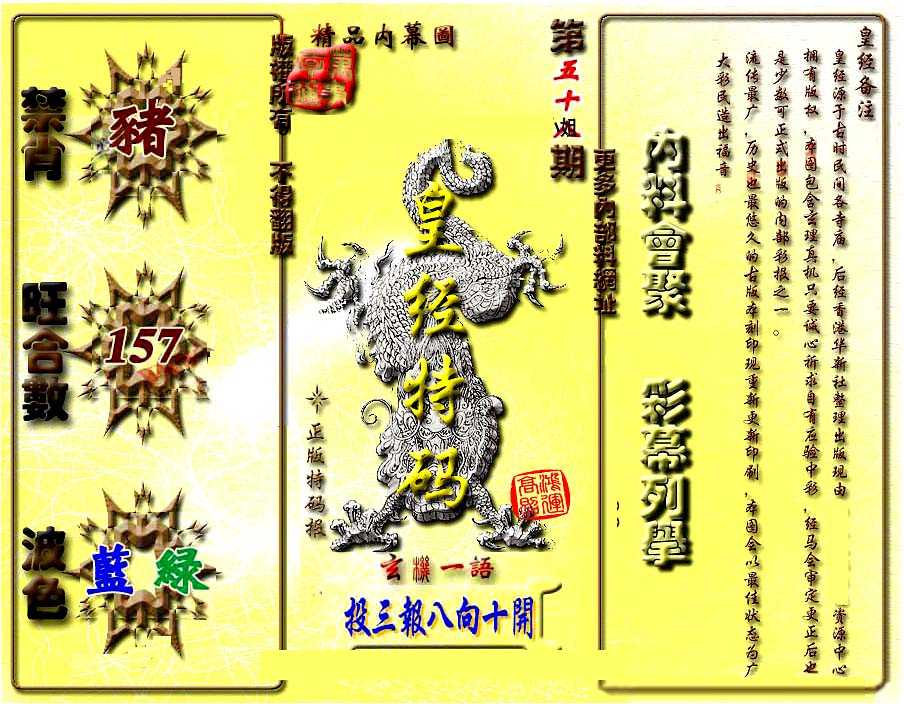 皇经备注
皇经源于古时民间各寺庙，后经香港华新社整理出版现由资源中心
拥有版权，本图包含玄理真机只要诚心祈求自有应验中彩，经马会审定更正后也
是少数可正式出版的内部彩报之一。
流传最广，历史也最悠久的古版本刻印现重新更新印刷，本图会以最佳状态为广
大彩民造出福音
內料會聚
彩幕列舉
更多內部料網址
第五十
期
精品内幕圖
版權所有
不得翻版
皇经特码
正版特码报
鴻運高照
玄機一語
投三報八向十開
禁肖
豬
旺合數
157
波色
藍 緑